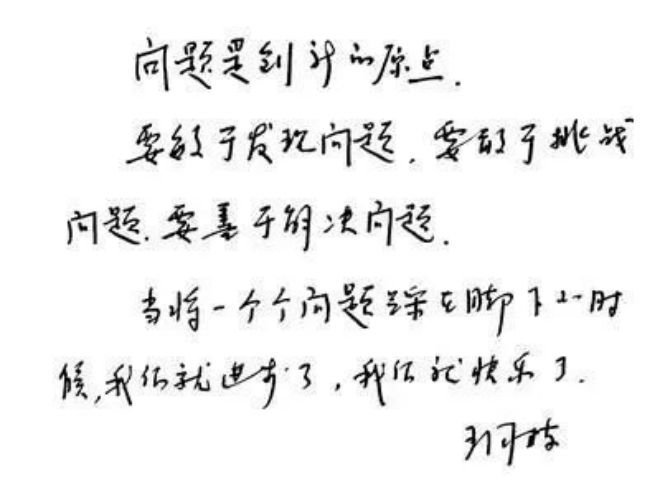 问题是创新的原点.
要敏于发现问题.要敢于挑战
问题.要善于解决问题.
当将一个个问题踩在脚下的时
候,我们就进步了,我们就快乐了.